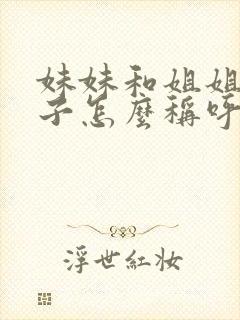 妹妹和姐姐
子怎麼稱呼
浮世紅妝